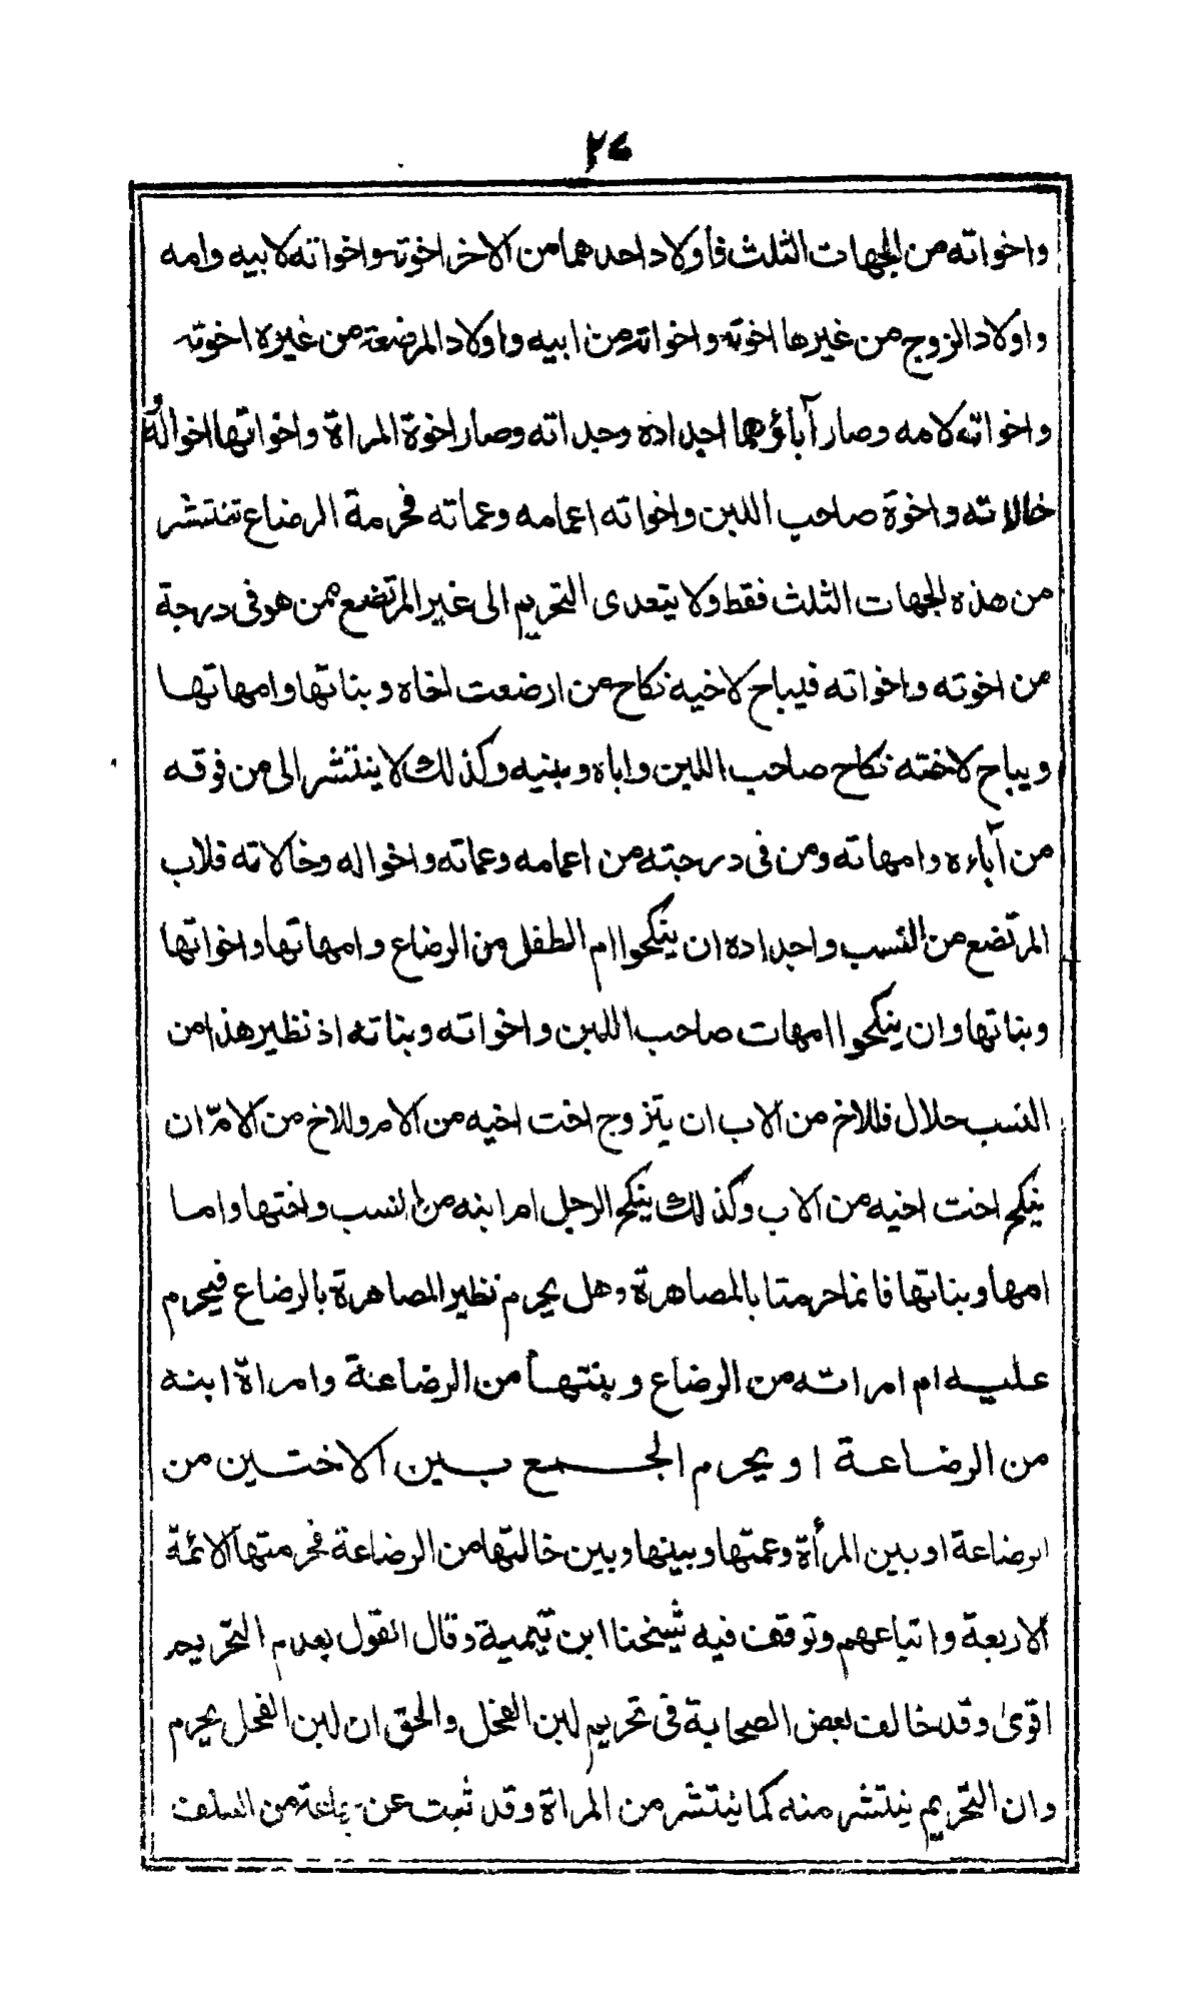 ٢٤
واخواته من الجهات الثلث فأولاد احدهما من الاخر اخوته واخواته لابيه وامه
واولاد الزوج من غيرها اخوته واخواته من ابيه واولاد المرضعة من غيره اخوته
واخواته لامه وصار آباؤهما اجداده وجداته وصار اخوة المراة واخواتها اخواله و
خالاته واخوة صاحب اللبن واخواته اعمامه وعماته فحرمة الرضاع تنتشر
من هذه الجهات الثلث فقط ولا يتعدى التحريم الى غير المرتضع ممن هو فى درجة
من اخوته واخواته فيباح لاخيه نكاح من ارضعت اخاه وبناتها وامهاتها
ويباح لاخته نكاح صاحب اللبن واباه وبنيه وكذلك لا ينتشر الى من فوقه
من آباءه وامهاته ومن فى درجته من اعمامه وعماته واخواله وخالاته فلاب
المرتضع من النسب واجداده ان ينكحوا ام الطفل من الرضاع وامهاتها واخواتها
وبناتها وان ينكحوا امهات صاحب اللبن واخواته وبناته اذ نظير هذا من
النسب حلال فللاخ من الاب ان يتزوج اخت اخيه من الام وللاخ من الامّ ان
ينكح اخت اخيه من الاب وكذلك ينكح الرجل ام ابنه من النسب واختها واما
امها وبناتها فانما حرمتا بالمصاهرة وهل يحرم نظير المصاهرة بالرضاع فيحرم
عليه ام امراته من الرضاع وبنتها من الرضاعة وامراة ابنه
من الرضاعة او يحرم الجمع بين الاختين من
الرضاعة او بين المرأة وعمتها وبينها وبين خالتها من الرضاعة فحرمتها الائمة
الاربعة واتباعهم وتوقف فيه شيخنا ابن تيمية وقال القول بعدم التحريم
اقوىٰ وقد خالف بعض الصحابة فى تحريم لبن الفحل والحق ان لبن الفحل يحرم
وان التحريم ينتشر منه كما ينتشر من المراة وقد ثبت عن جماعة من السلف